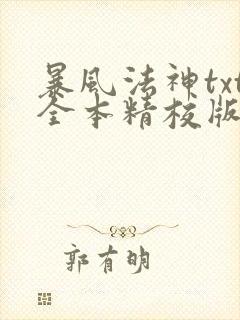 暴風法神txt
全本精校版
郭有明